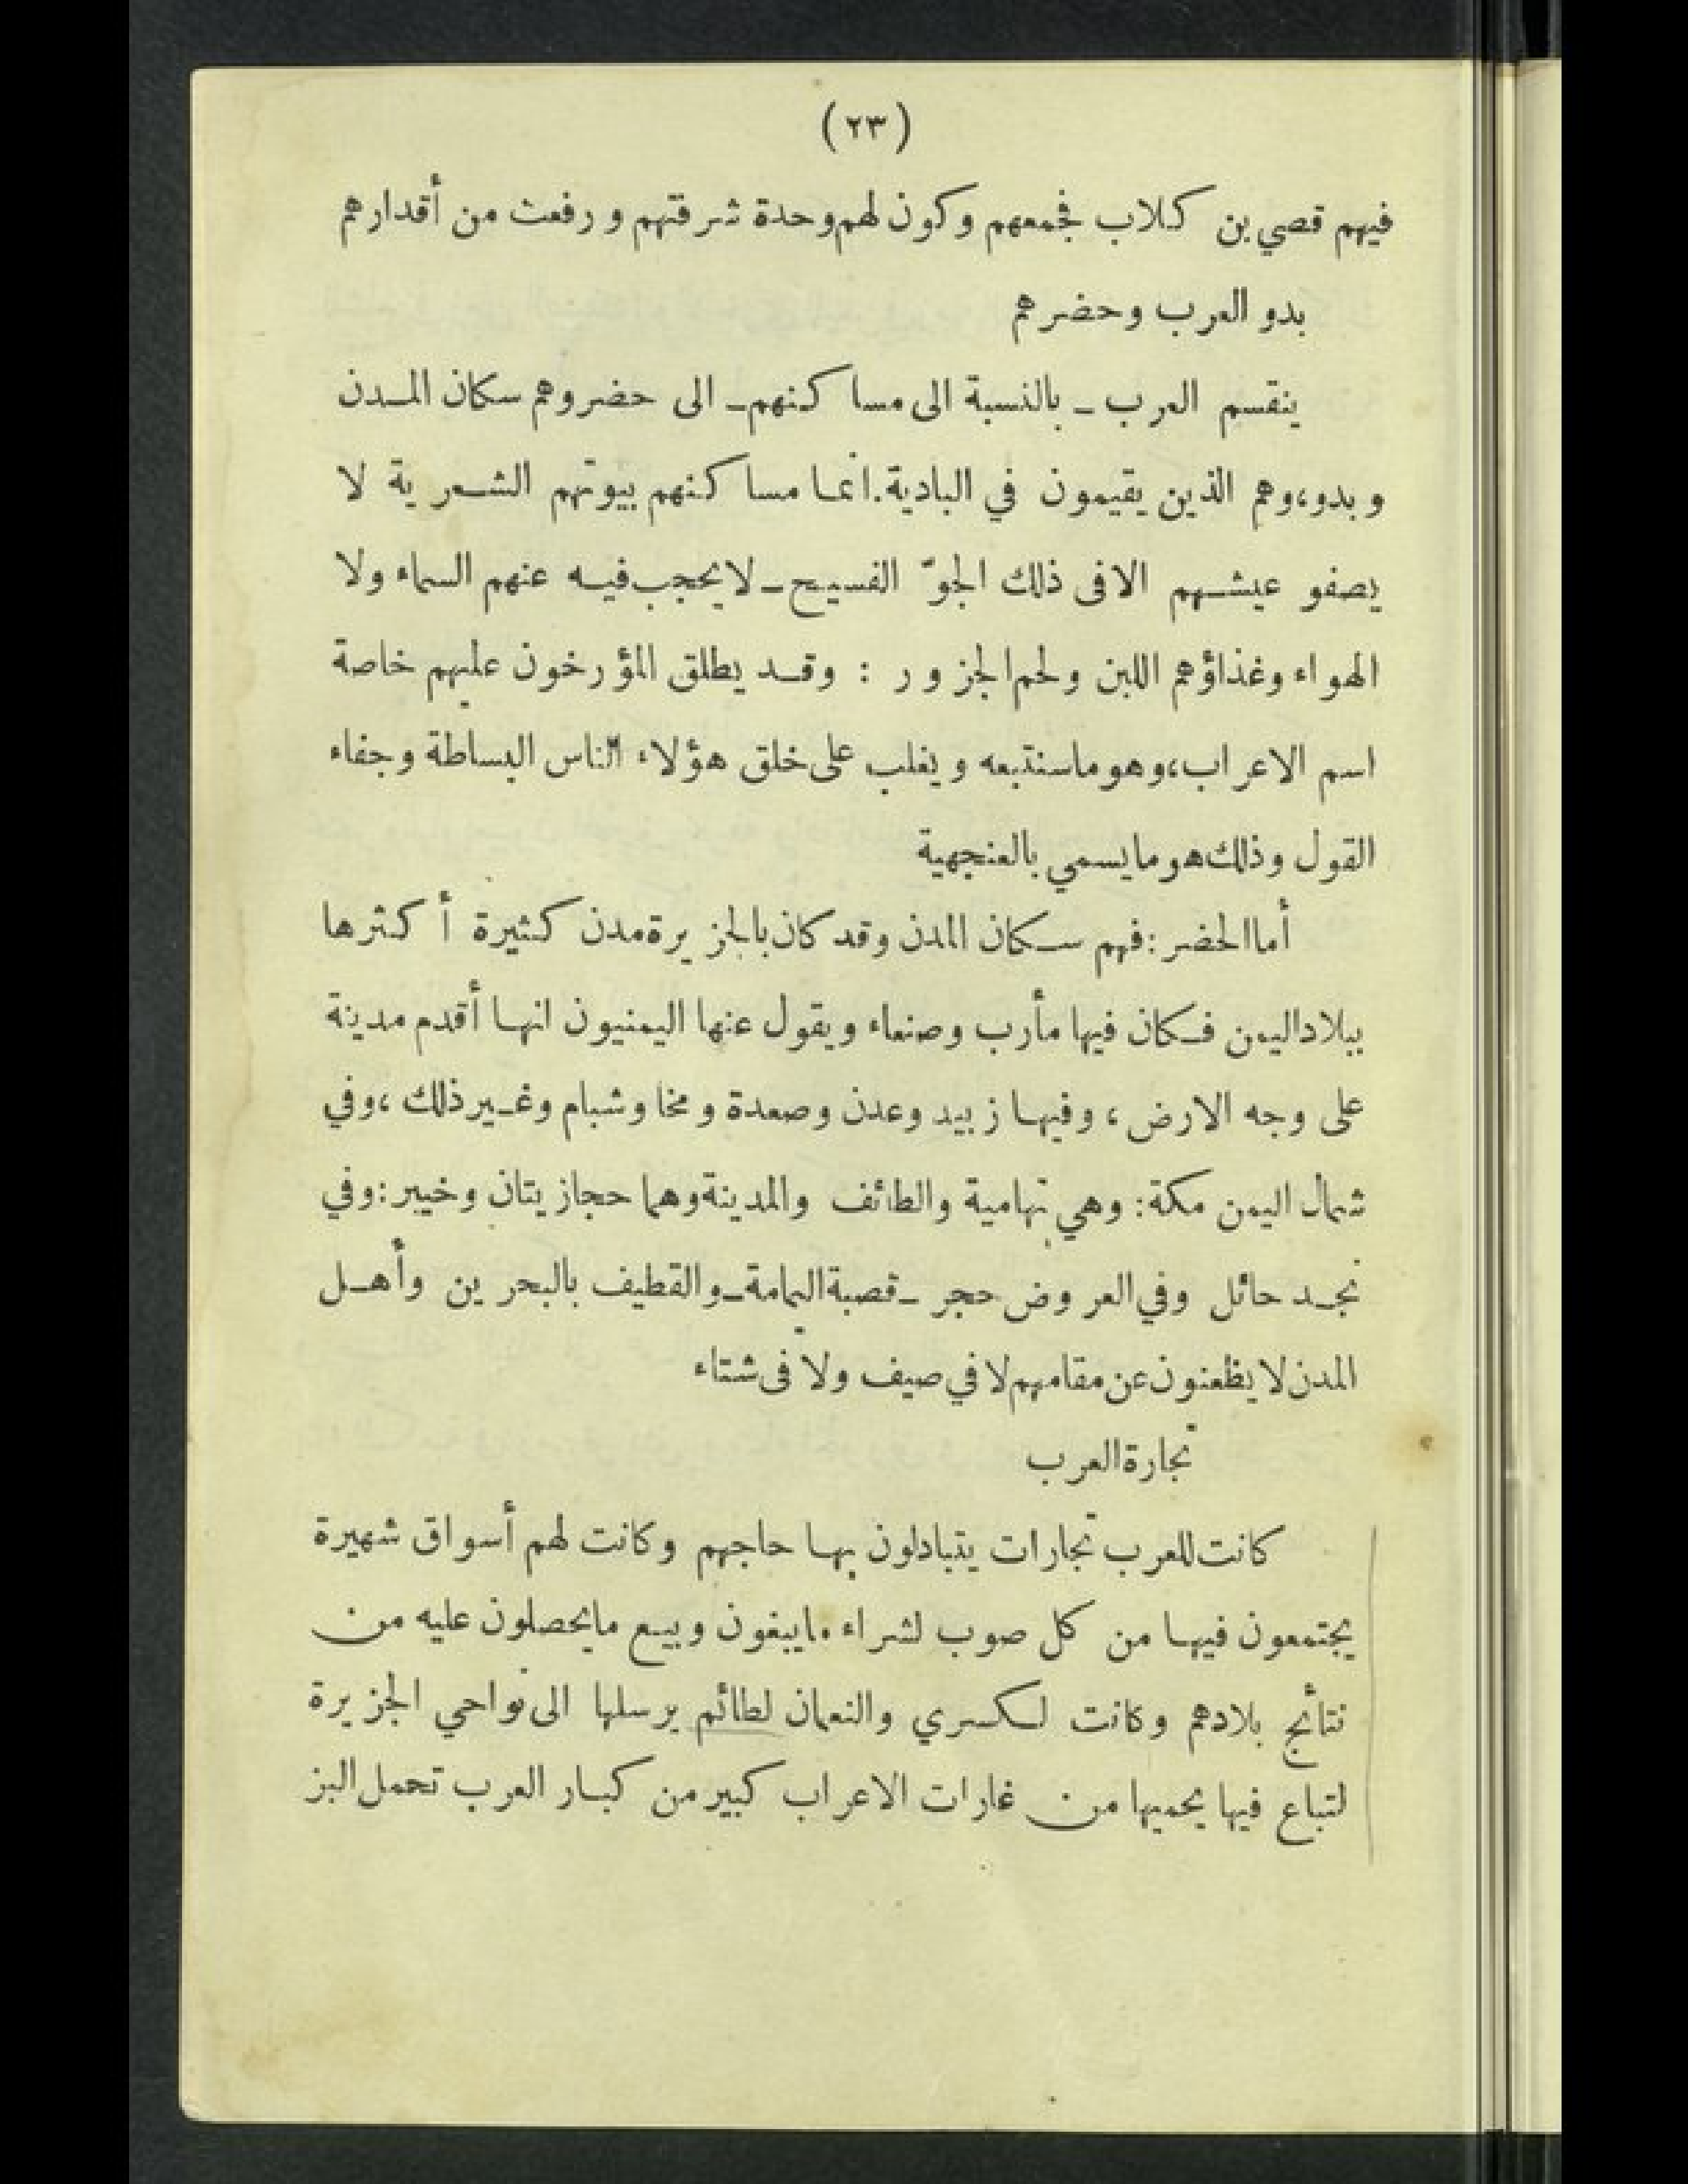 (٢٣)
فيهم قصي بن كلاب فجمعهم وكون لهم وحدة شرفتهم ورفعت من أقدارهم
بدو العرب وحضرهم
ينقسم العرب ــ بالنسبة الى مساكنهم ــ الى حضر وهم سكان المدن
وبدو، وهم الذين يقيمون في البادية. انما مساكنهم بيوتهم الشعرية لا
يصفو عيشهم الا فى ذلك الجوّ الفسيح ــ لا يحجب فيه عنهم السماء ولا
الهواء وغذاؤهم اللبن ولحم الجزور : وقد يطلق المؤرخون عليهم خاصة
اسم الاعراب، وهو ما سنتبعه ويغلب على خلق هؤلاء الناس البساطة وجفاء
القول وذلك هو ما يسمي بالعنجهية
أما الحضر : فهم سكان المدن وقد كان بالجزيرة مدن كثيرة أكثرها
ببلاد اليمن فكان فيها مأرب وصنعاء ويقول عنها اليمنيون انها أقدم مدينة
على وجه الارض، وفيها زبيد وعدن وصعدة ومخا وشبام وغير ذلك، وفي
شمال اليمن مكة : وهي تهامية والطائف والمدينة وهما حجازيتان وخيبر : وفي
نجد حائل وفي العروض حجر ــ قصبة اليمامة ــ والقطيف بالبحرين وأهل
المدن لا يظعنون عن مقامهم لا في صيف ولا فى شتاء
تجارة العرب
كانت للعرب تجارات يتبادلون بها حاجهم وكانت لهم أسواق شهيرة
يجتمعون فيها من كل صوب لشراء ما يبغون وبيع ما يحصلون عليه من
نتائج بلادهم وكانت لكسري والنعمان لطائم يرسلها الى نواحي الجزيرة
لتباع فيها يحميها من غارات الاعراب كبير من كبار العرب تحمل البز